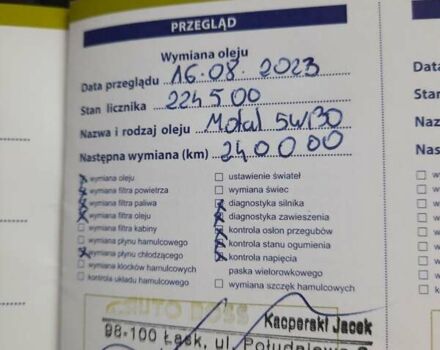 PRZEGLĄD
Wymiana oleju
Data przeglądu 16.08.2023
Stan licznika 224500
Nazwa i rodzaj oleju Motal 5W/30
Następna wymiana (km) 240000
wymiana oleju
wymiana filtra powietrza
wymiana filtra paliwa
wymiana filtra oleju
wymiana filtra kabiny
wymiana płynu hamulcowego
wymiana płynu chłodzącego
wymiana klocków hamulcowych
kontrola układu hamulcowego
ustawienie świateł
wymiana świec
diagnostyka silnika
diagnostyka zawieszenia
kontrola osłon przegubów
kontrola stanu ogumienia
kontrola napięcia
paska wielorowkowego
wymiana szczęk hamulcowych
AUTO BOSS
Kacperski Jacek
98-100 Łask, ul. Południowa
D
Stan
Naz
Nas
wy
wy
wy
wy
wy
wy
wy
wy